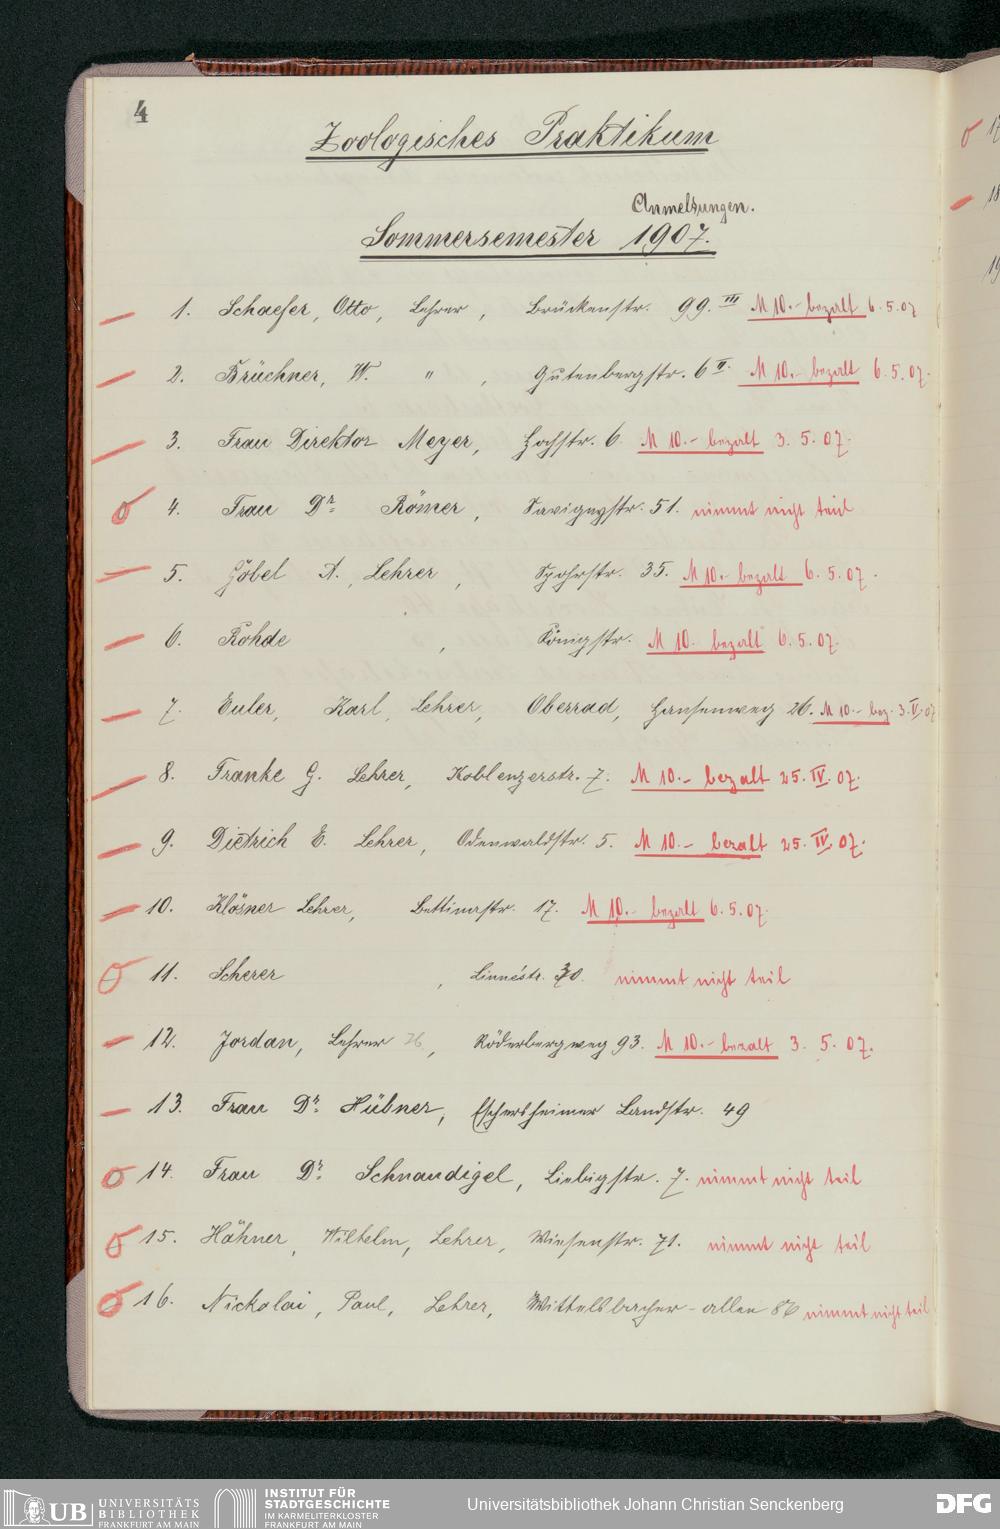 4
Zoologisches Praktikum
Anmeldungen.
Sommersemester 1907.
1. Schaefer, Otto, Lehrer, Brückenstr. 99. III M 10.- bezalt 6.5.07
2. Brüchner, W. " , Gutenbergstr. 6 II. M 10.- bezalt 6.5.07.
3. Frau Direktor Meyer, Hochstr. 6 M 10.- bezalt 3.5.07.
4. Frau Dr. Römer, Savignystr. 51. nimmt nicht teil
5. Göbel A., Lehrer, Spohrstr. 35. M 10.- bezalt 6.5.07.
6. Rohde , Königstr. M 10.- bezalt 6.5.07.
7. Euler, Karl, Lehrer, Oberrad, Hansenweg 26. M 10.- bez. 3.V.07
8. Franke G. Lehrer, Koblenzerstr. 7. M 10.- bezalt 25.IV.07.
9. Dietrich E. Lehrer, Odenwaldstr. 5. M 10.- bezalt 25.IV.07.
10. Klösner Lehrer, Bettinastr. 17. M 10.- bezalt 6.5.07.
11. Scherer , Linnéstr. nimmt nicht teil
12. Jordan, Lehrer 26, Röderbergweg 93. M 10.- bezalt 3.5.07.
13. Frau Dr. Hübner, Eschersheimer Landstr. 49
14. Frau Dr. Schnaudigel, Liebigstr. 7. nimmt nicht teil
15. Hähner, Wilhelm, Lehrer, Wiesenstr. 71. nimmt nicht teil
16. Nickolai, Paul, Lehrer, Wittelsbacher-allee nimmt nicht teil
17
18
19
UB UNIVERSITÄTS
BIBLIOTHEK
FRANKFURT AM MAIN
INSTITUT FÜR
STADTGESCHICHTE
IM KARMELITERKLOSTER
FRANKFURT AM MAIN
Universitätsbibliothek Johann Christian Senckenberg
DFG